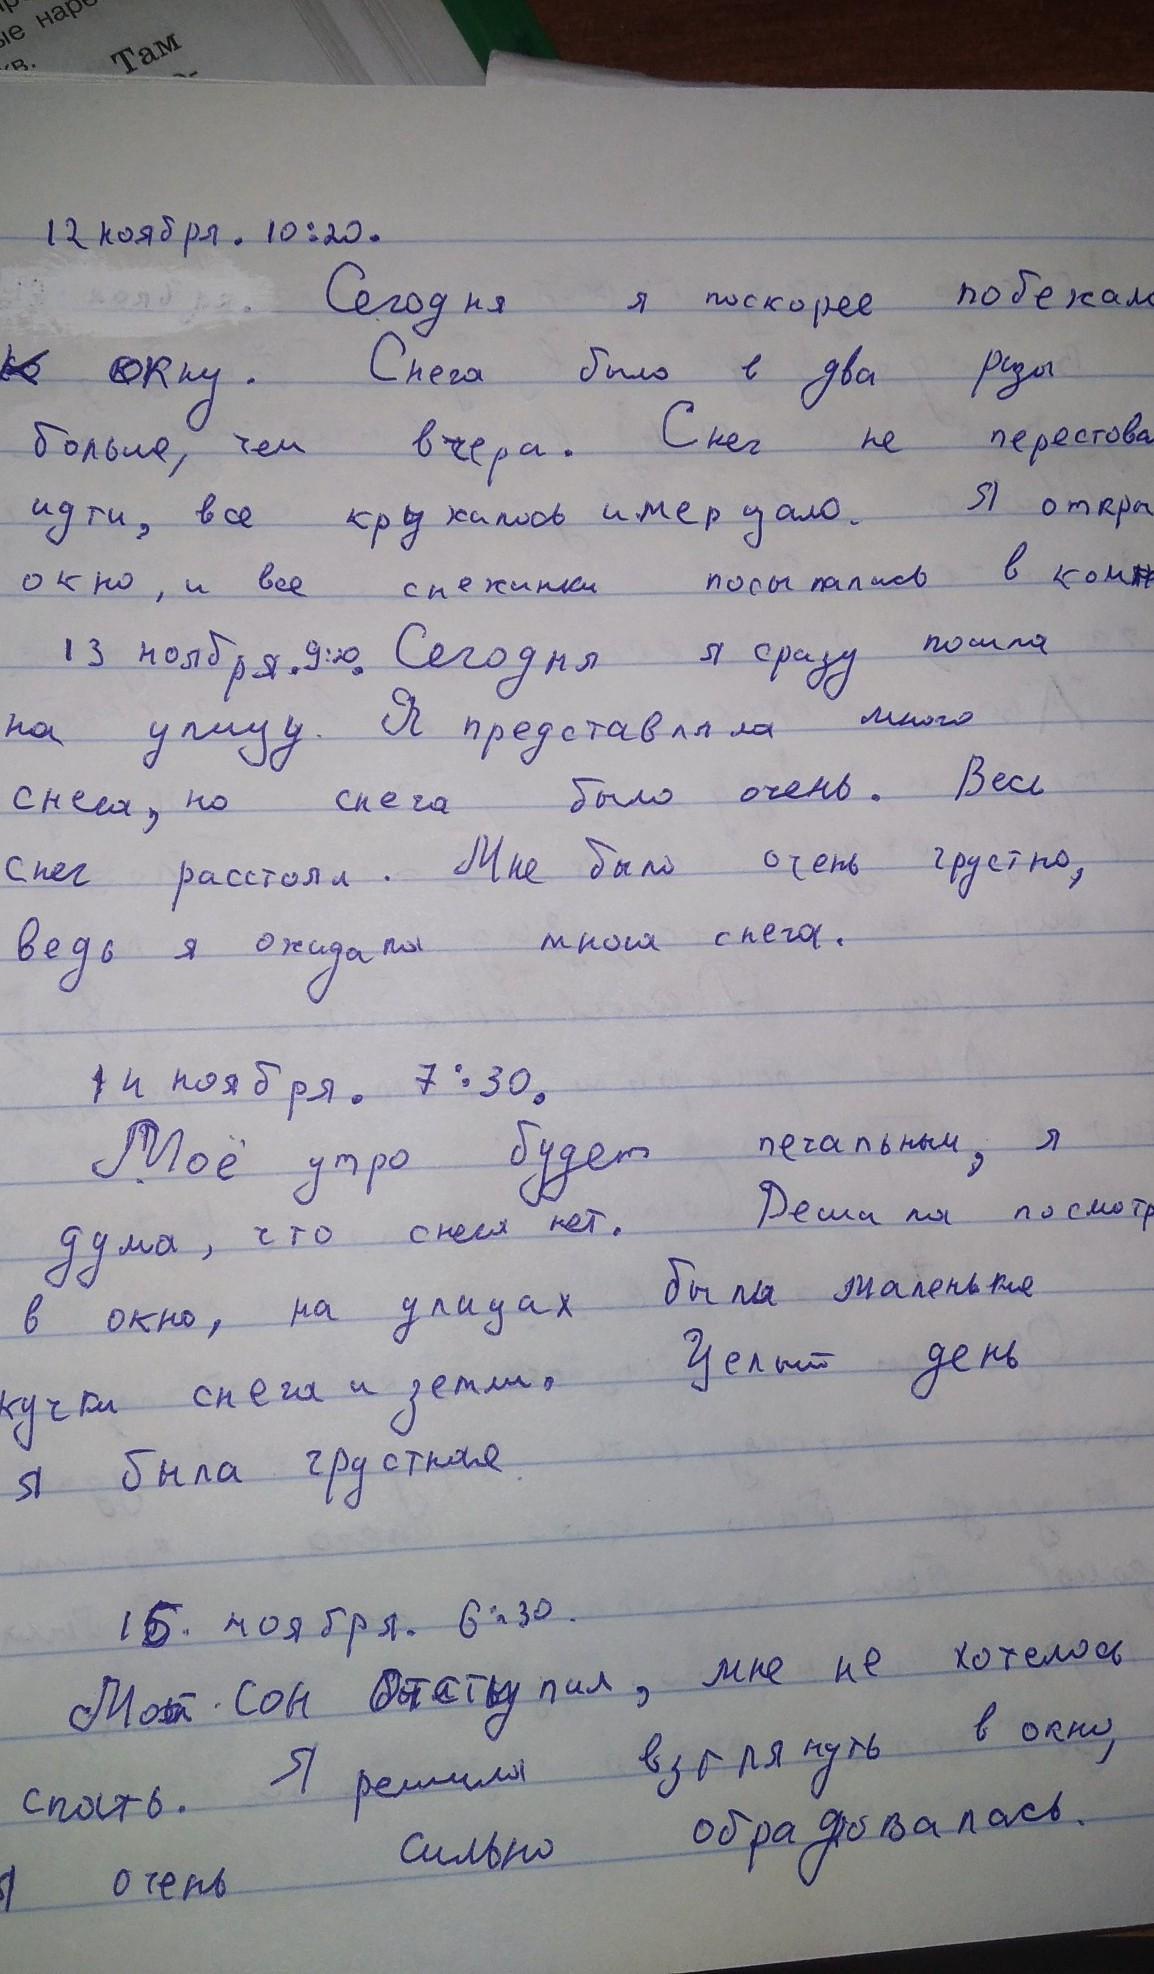 ые
кв.
Там
12 ноября. 10:20.
Сегодня я поскорее побежал
окну. Снега было в два разы
больше, чем вчера. Снег не перестова
идти, все кружилось и мерцало. Я откры
окно, и все снежинки посыпались в комн
13 ноября. 9:20. Сегодня я сразу пошла
на улицу. Я представляла много
снега, но снега было очень. Весь
снег расстоял. Мне было очень грустно,
ведь я ожидала много снега.
14 ноября. 7:30.
Моё утро будет печальным, я
дума, что снега нет. Решила посмотр
в окно, на улицах были маленькие
кучки снега и земли. Целый день
я была грустная
15. ноября. 6:30.
Мой сон отступил, мне не хотелось
спать. Я решила взглянуть в окно,
я очень сильно обрадовалась.